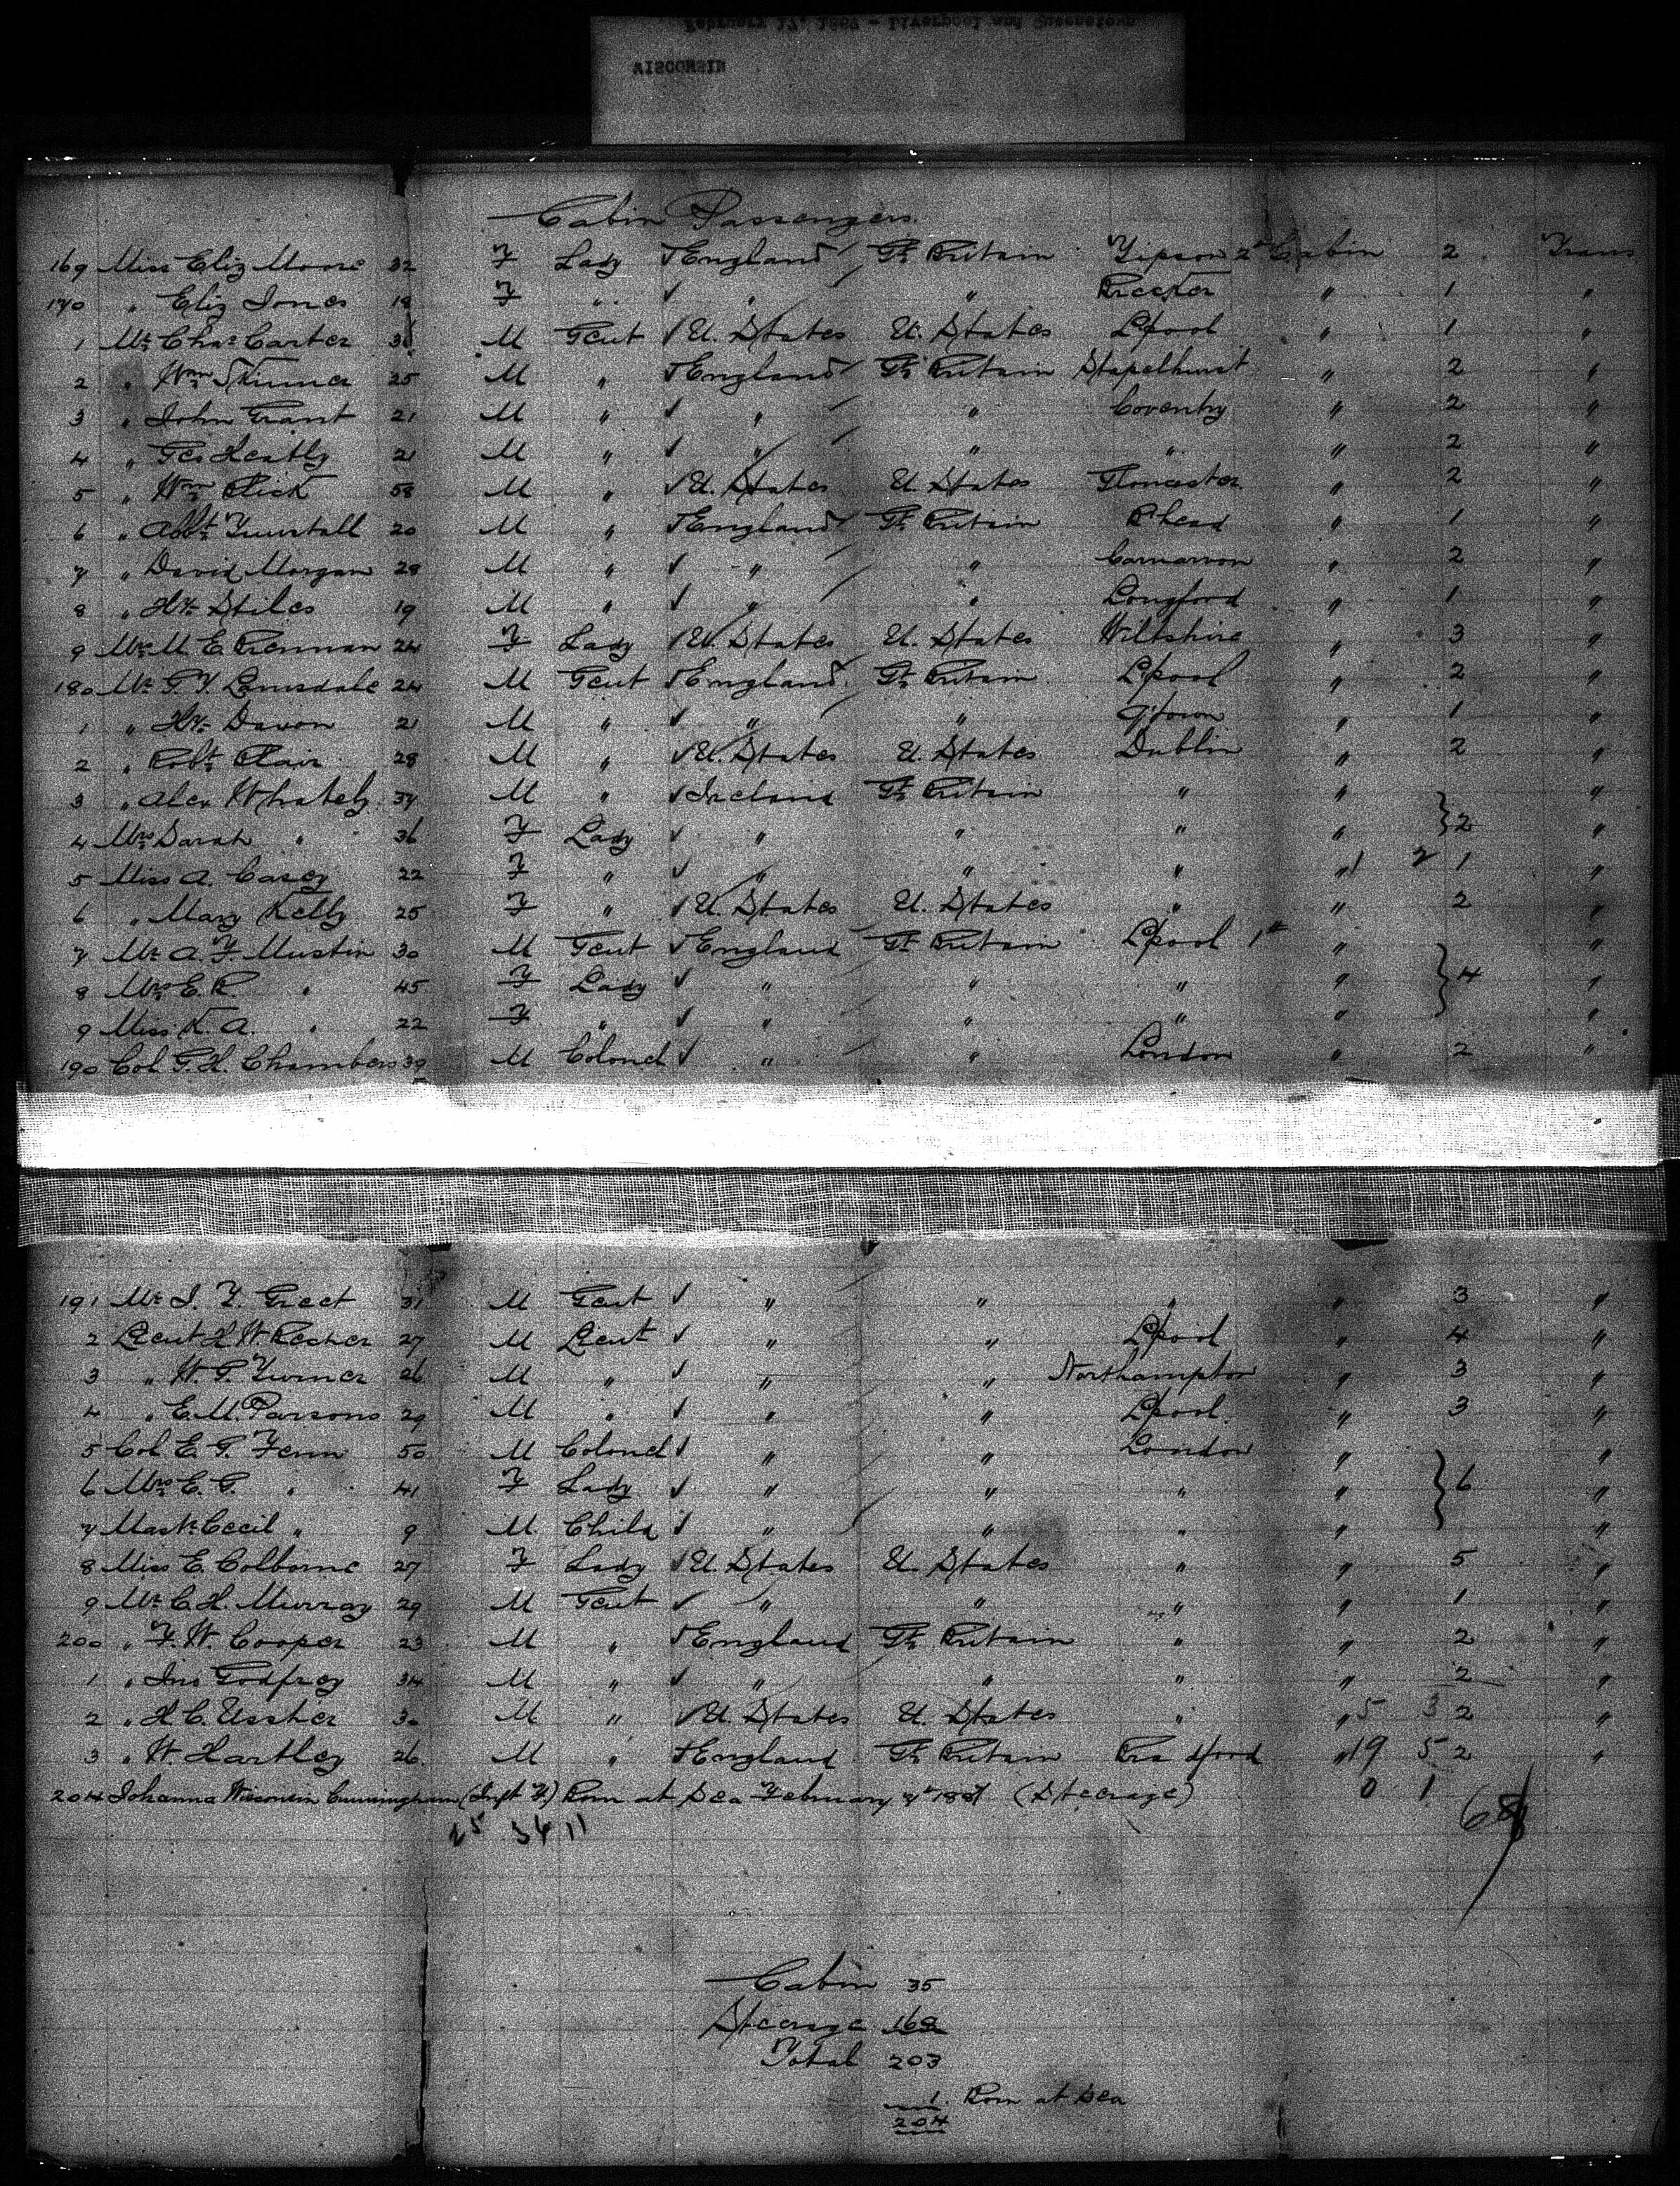 February 17, 1887 - Liverpool and Queenstown
WISCONSIN
Cabin Passengers.
169 Miss Eliz Moore 32 F Lady England Gt. Britain 2nd Cabin 2 Trans
170 " Eliz Jones F " " " " 1 "
1 Mr. Chas. Carter M Gent U. States U. States L'pool " 1 "
2 " Wm Skinner 25 M " England Gt. Britain Staplehurst " 2 "
3 " John Grant 21 M " " " Coventry " 2 "
4 " Geo Heatly 21 M " " " " " 2 "
5 " Wm 58 M " U. States U. States Gloucester " 2 "
6 " 20 M " England Gt. Britain B'head " 1 "
7 " David Morgan 28 M " " " Carnarvon " 2 "
8 " Hy. Stiles 19 M " " " Longford " 1 "
9 Mrs. M. E. 24 F Lady U. States U. States Wiltshire " 3 "
180 Mr. G. T. Lonsdale 24 M Gent England Gt. Britain L'pool " 2 "
1 " Hy. Davon 21 M " " " Q'town " 1 "
2 " Robt. Blair 28 M " U. States U. States Dublin " 2 "
3 " Alex Whately M " Ireland Gt. Britain " " "
4 Mrs. Sarah " 36 F Lady " " " " } 2 "
5 Miss A. Casey 22 F " " " " " 1 "
6 " Mary Kelly 25 F " U. States U. States " " 2 "
7 Mr. A. F. Mustin 30 M Gent England Gt. Britain L'pool 1st " "
8 Mrs. E. R. " 45 F Lady " " " " } 4 "
9 Miss K. A. " 22 F " " " " " "
190 Col G. H. Chambers 39 M Colonel " " London " 2 "
191 Mr. J. T. Greet 31 M Gent " " " " 3 "
2 Lieut H W Becher 27 M Lieut " " L'pool " 4 "
3 " W. G. Turner 26 M " " " Northampton " 3 "
4 " E. M. Parsons 29 M " " " L'pool. " 3 "
5 Col E. G. Fenn 50 M Colonel " " London " "
6 Mrs. E. G. " 41 F Lady " " " " } 6 "
7 Mastr. Cecil " 9 M. Child " " " " "
8 Miss E. Colborne 27 F Lady U. States U. States " " 5 "
9 Mr. C. H. Murray 29 M Gent " " " " 1 "
200 " F. W. Cooper 23 M " England Gt. Britain " " 2 "
1 " Jno Godfrey 34 M " " " " " 2 "
2 " H C. Ussher 30 M " U. States U. States " " 5 3 2 "
3 " W Hartley 26 M " England Gt. Britain Bradford " 19 5 2 "
204 Johanna Wisconsin Cunningham (Inft F.) Born at Sea February 1887 (Steerage) 0 1
68
Cabin 35
Steerage 168
Total 203
1. Born at Sea
204